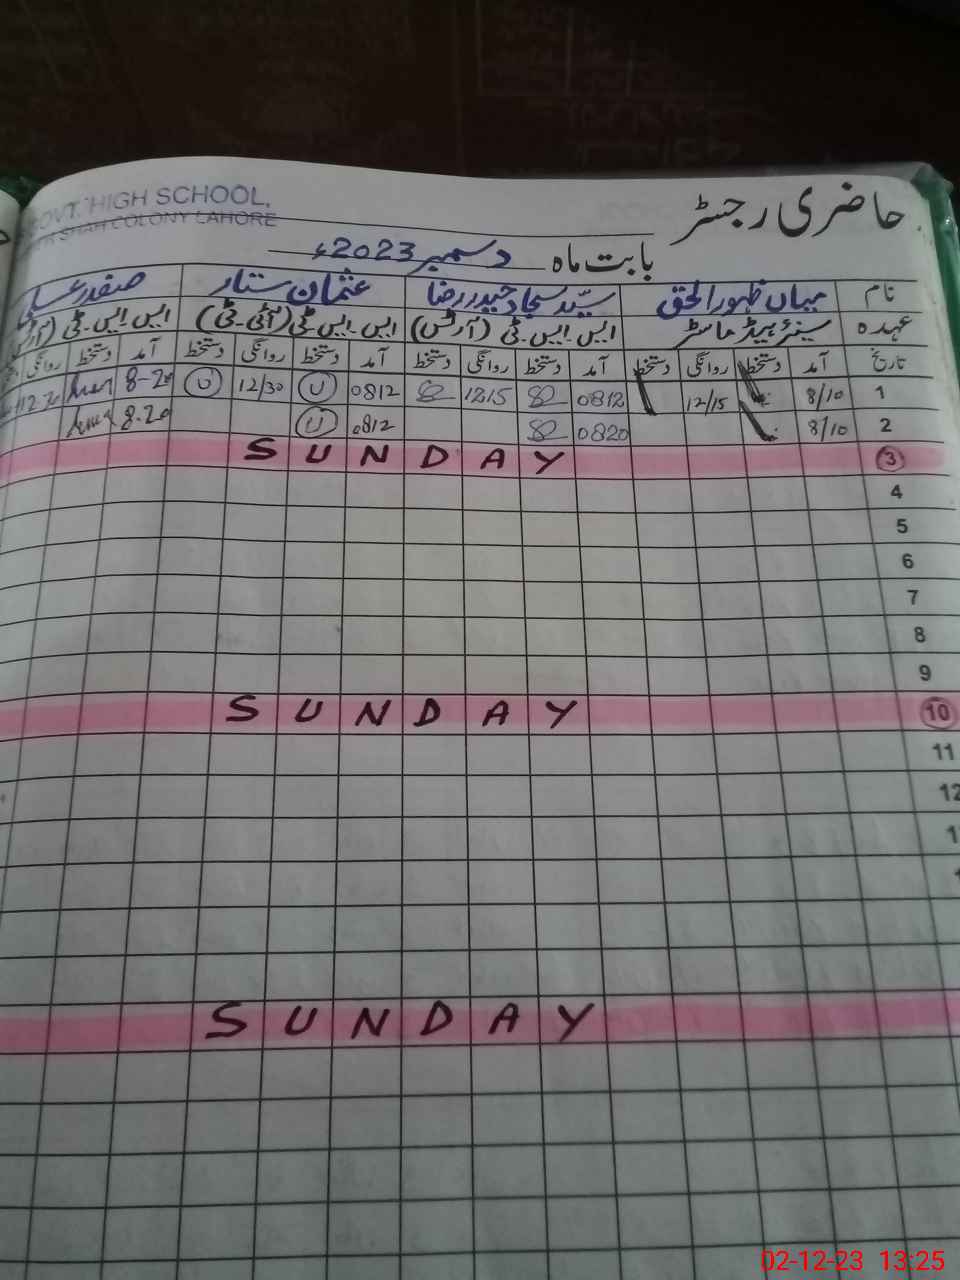 GOVT. HIGH SCHOOL,
SHAH COLONY LAHORE
حاضری رجسٹر
بابت ماہ دسمبر 2023ء
نام میاں ظہورالحق سیّد سجاد حیدر رضا عثمان ستار صفدر علی
عہدہ سینئر ہیڈ ماسٹر ایس ایس ٹی (آرٹس) ایس ایس ٹی (آئی ٹی) ایس ایس ٹی
تاریخ آمد دستخط روانگی دستخط آمد دستخط روانگی دستخط آمد دستخط روانگی دستخط آمد دستخط روانگی
1 8/10 12/15 0812 1215 0812 12/30 8-20 12-20
2 8/10 0820 0812 8-20
3 SUNDAY
4
5
6
7
8
9
10 SUNDAY
11
12
SUNDAY
02-12-23 13:25